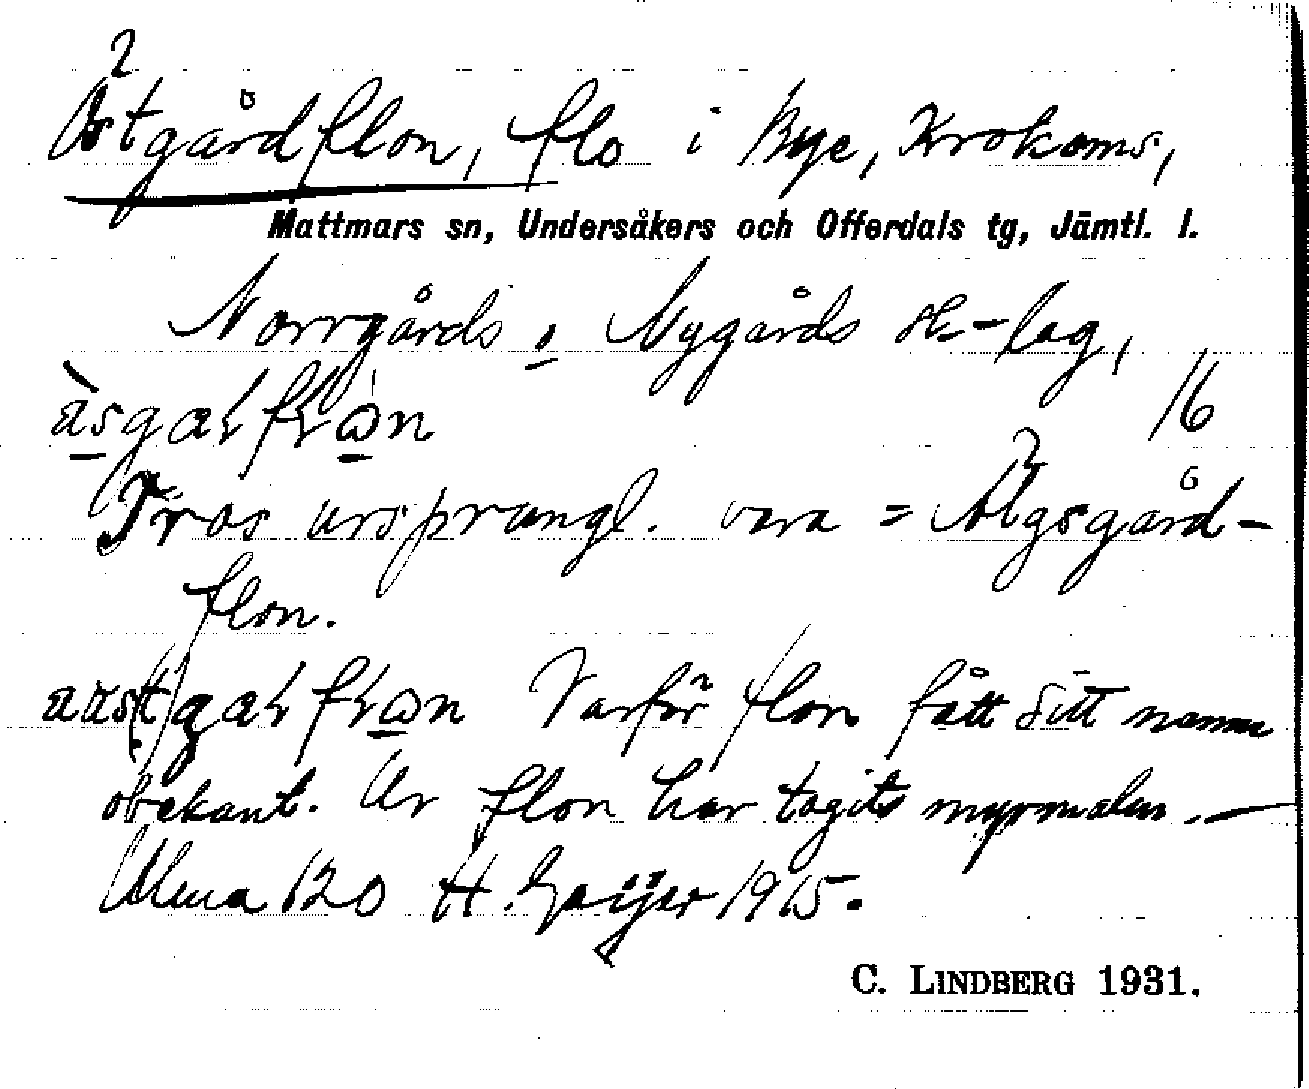 Östgårdflon, flo i Bye, Krokoms,
Mattmars sn, Undersåkers och Offerdals tg, Jämtl. l.
Norrgårds o Nygårds sk-lag,
16
Tros ursprungl. vara = Älgsgård-
flon.
Varför flon fått sitt namn
obekant. Ur flon har tagits myrmalm. —
Ulma 120 H. Geijer 1915.
C. LINDBERG 1931.